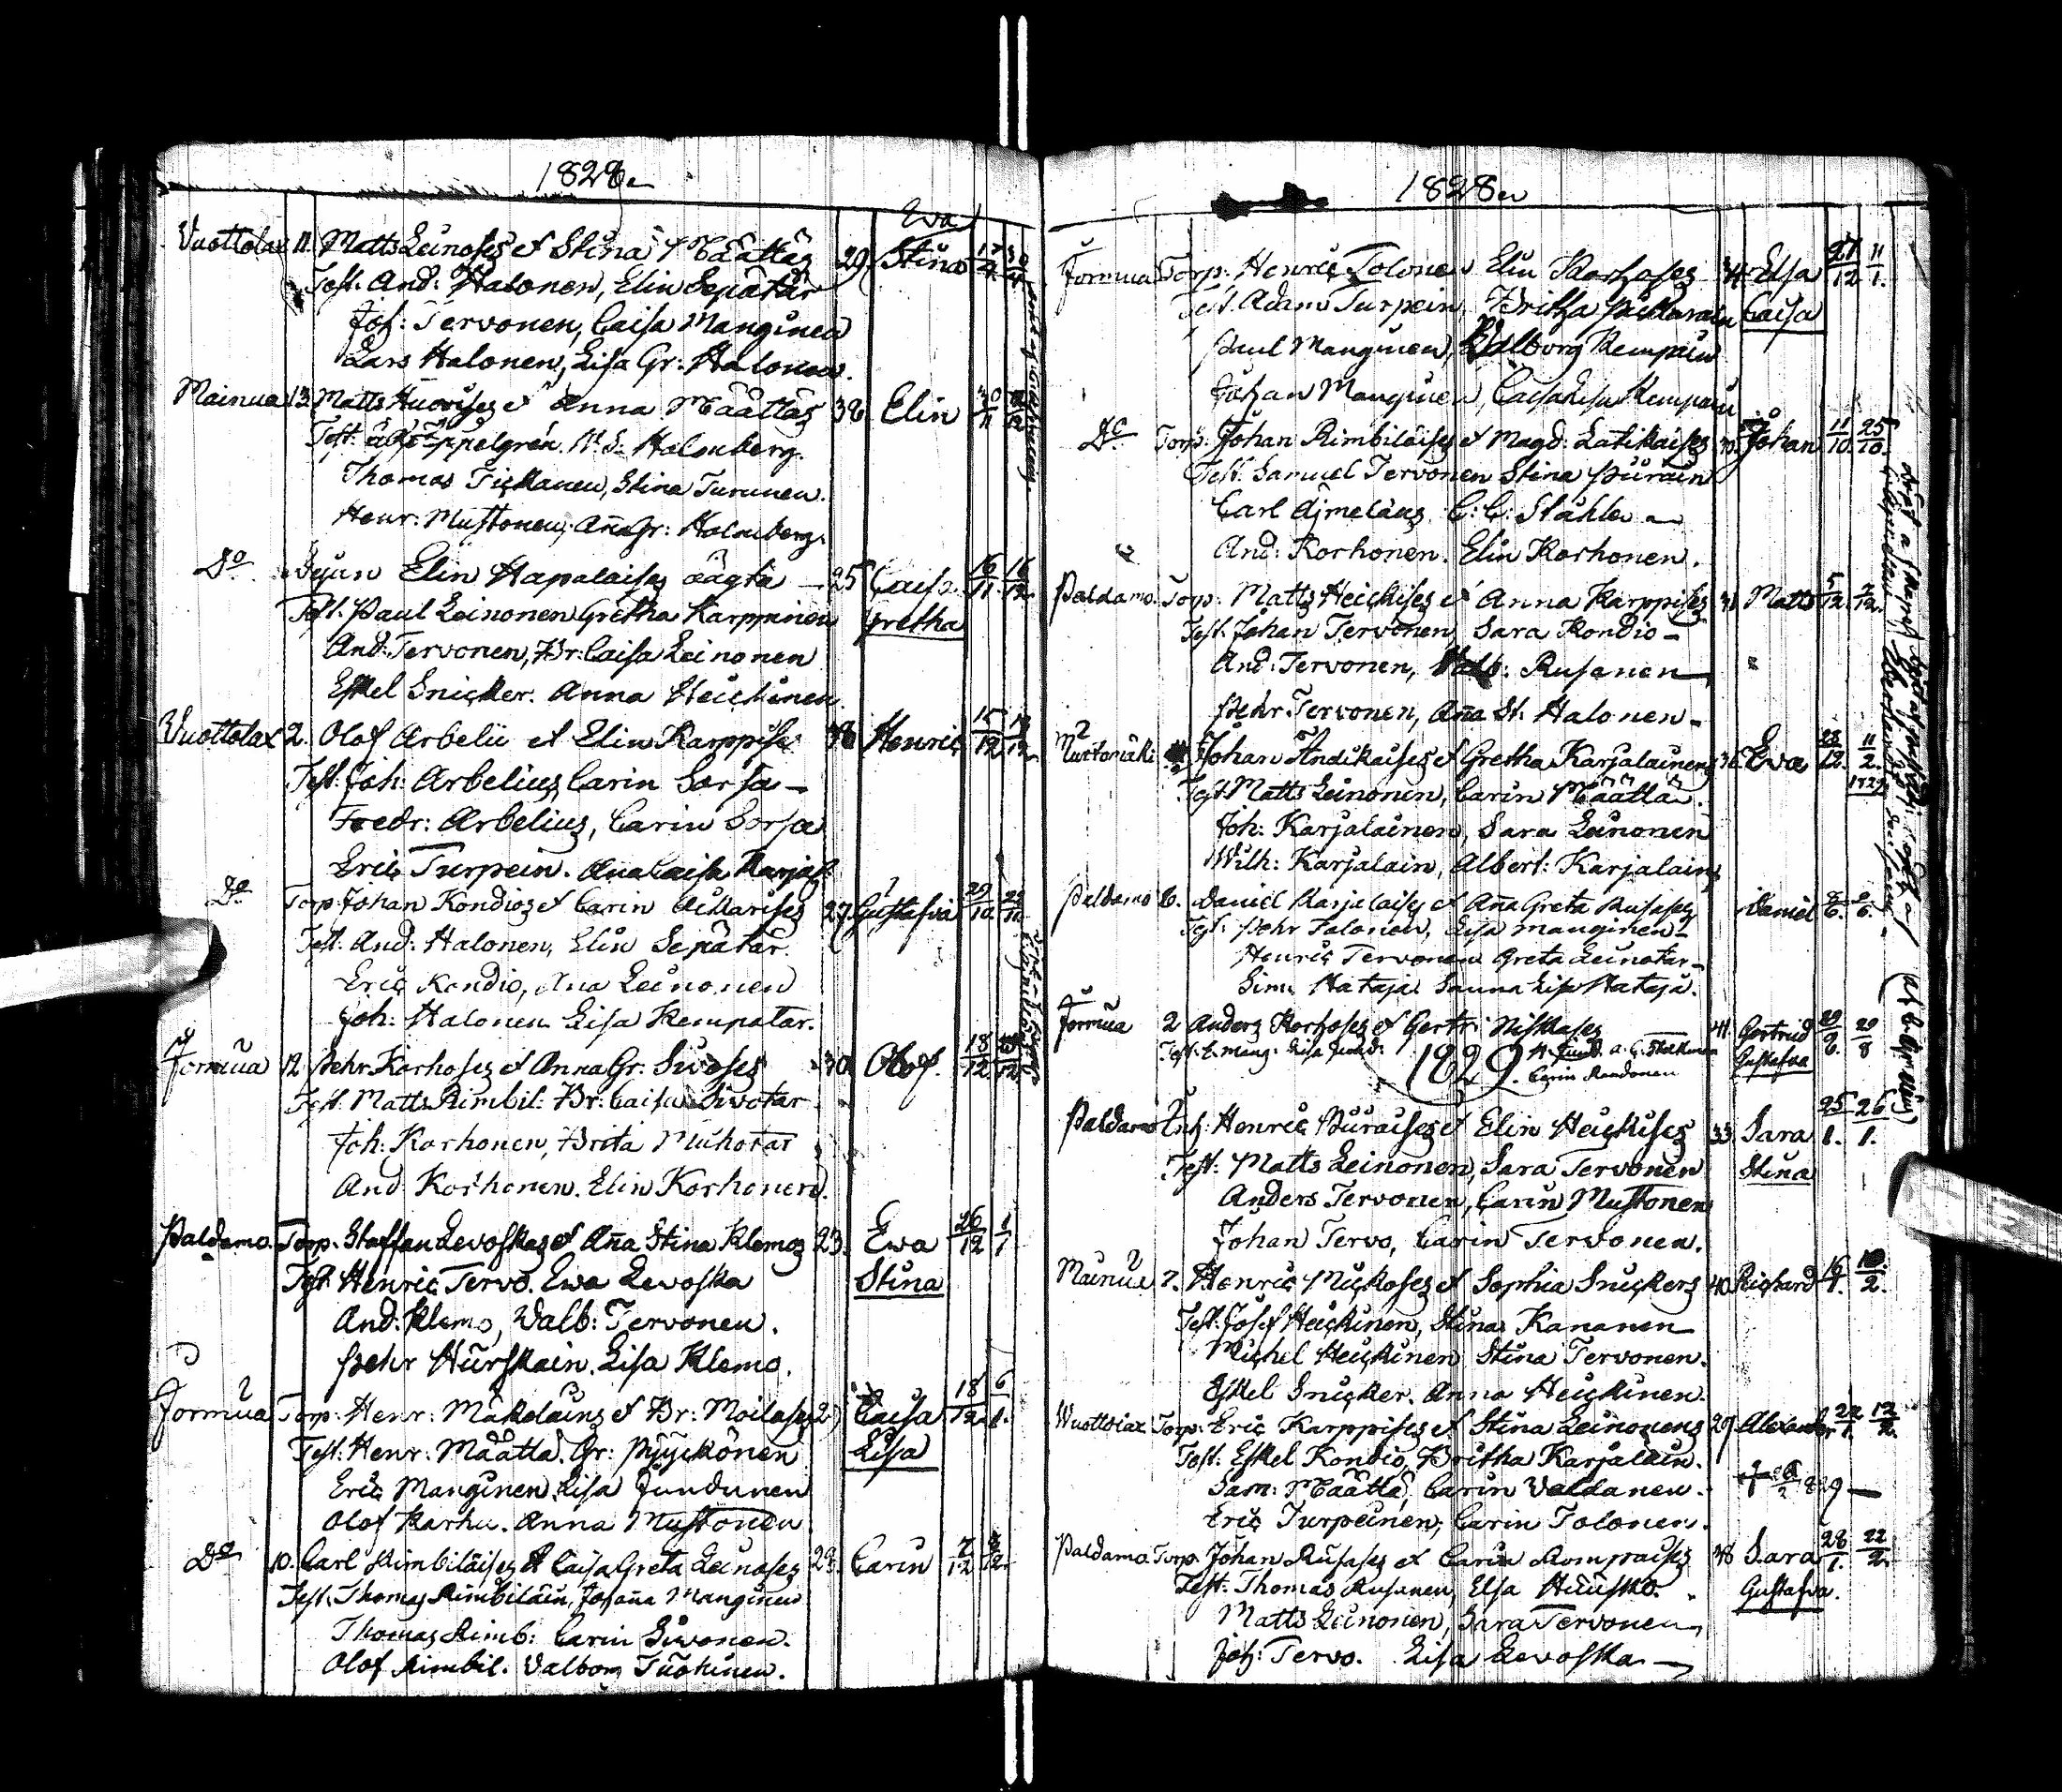 1828
Ewa
Vuottolax 11. Matts Leinoses et Stina Määttäs 29. Stina 17/4
Test. And: Halonen, Elin Sepätär
Joh: Tervonen, Caisa Manginen
Lars Halonen, Lisa Gr: Halonen.
Mainua 13. Matts Huovises et Anna Määttäs 38 Elin 30/11
Test. Holmberg.
Thomas Tickanen, Stina Turunen.
Henr: Mustonen, Aña Gr: Holmberg.
Do Elin Hapalaises oägta 25 Caisa 16/11 16/12
Test. Paul Leinonen Gretha Karppinen Gretha
And: Tervonen, Br: Caisa Leinonen
Eskel Snicker. Anna Heickinen
Vuottolax 2. Olof Arbelii et Elin Karppises 38 Henric 15/12
Test. Joh: Arbelius, Carin Sorsa
Fredr: Arbelius, Carin Sorsa
Eric Turpein. Aña Caisa
Do Torp. Johan Kondios et Carin 27. Gustafva 29/10
Test. And: Halonen, Elin Sepätär.
Eric Kondio, Ana Leinonen
Joh: Halonen Lisa Kempatar.
Jormua 12. Pehr Korhoses et Anna Gr: Sivoses 30 Olof. 18/12
Test. Matts Rimbil: Br: Caisa Sivotar
Joh: Korhonen, Brita Muhotar
And: Korhonen. Elin Korhonen.
Paldamo. Torp. Staffan Levoskas et Aña Stina Klemos 23. Ewa 26/12 1/1
Test. Henric Tervo. Ewa Levoska Stina
And: Klemo, Valb: Tervonen.
Pehr Hurskain. Lisa Klemo.
Jormua Torp. Henr: Mäkeläins et Br: Moilases Caisa 18/12 6/1.
Test. Henr: Määttä. Gr: Pyyckönen Lisa
Eric Manginen, Lisa Jundunen
Olof Karhu. Anna Mustonen
Do 10. Carl Rimbiläises et Caisa Greta Leinoses 23. Carin 7/12
Test. Thomas Rimbiläin, Johaña Manginen
Thomas Rimb: Carin Sivonen.
Olof Rimbil. Valborg Tuohinen.
1828
Jormua Torp. Henric Tolonen Elin Korhoses Elsa 27/12 11/1.
Test. Adam Turpein, Britha Caisa
Paul Manginen, Valborg Kempain
Johan Manginen, Caisa Lisa Kempain
Do Torp. Johan Rimbiläises et Magd: Latikaises Johan 11/10. 25/10.
Test. Samuel Tervonen Stina Piirain
Carl Ajmelæus. C: C: Ståhle
And: Korhonen. Elin Korhonen.
Paldamo. Torp. Matts Heickises et Anna Karppises 31 Matts 5/12 7/12.
Test. Johan Tervonen, Sara Kondio
And: Tervonen, Valb: Rusanen
Pehr Tervonen, Aña St: Halonen
Johan Andikaises et Gretha Karjalainens Ewa 28/12. 11/2. 1829
Test. Matts Leinonen, Carin Määttä.
Joh: Karjalainen, Sara Leinonen
Wilh: Karjalain, Albert: Karjalains
Paldamo 6. Daniel Karjalaises et Aña Greta Rusases Daniel 8/6. 9/6.
Test. Pehr Tolonen, Lisa Manginen
Henric Tervonen Greta Leinotar
Sim: Hataja Sanna Lisa Hataja.
Jormua 2 Anders Korhoses et Gertr: Niskases 41. Gertrud 29/8
Gustafva
Carin Randonen
1829.
Paldamo Inh: Henric Piiraises et Elin Heickises 33. Sara 25/1. 26/1.
Test. Matts Leinonen, Sara Tervonen Stina
Anders Tervonen, Carin Mustonen
Johan Tervo, Carin Tervonen.
Mainua 7. Henric Mickoses et Sophia Snickers 40. Richard 16/1. 10/2.
Test. Josef Heickinen, Stina Kananen
Michel Heickinen Stina Tervonen.
Eskel Snicker. Anna Heickinen.
Wuottolax Torp. Eric Karppises et Stina Leinonens 29. Alexander 22/1. 12/2.
Test. Eskel Kondio, Britha Karjalain.
Sam: Määttä, Carin Valdanen.
Eric Turpeinen, Carin Tolonen.
Paldamo Torp. Johan Rusases et Carin Rompaises 38 Sara 28/1. 22/2.
Test. Thomas Rusanen, Elsa Gustafva.
Matts Leinonen, Sara Tervonen,
Joh: Tervo. Lisa Levoska